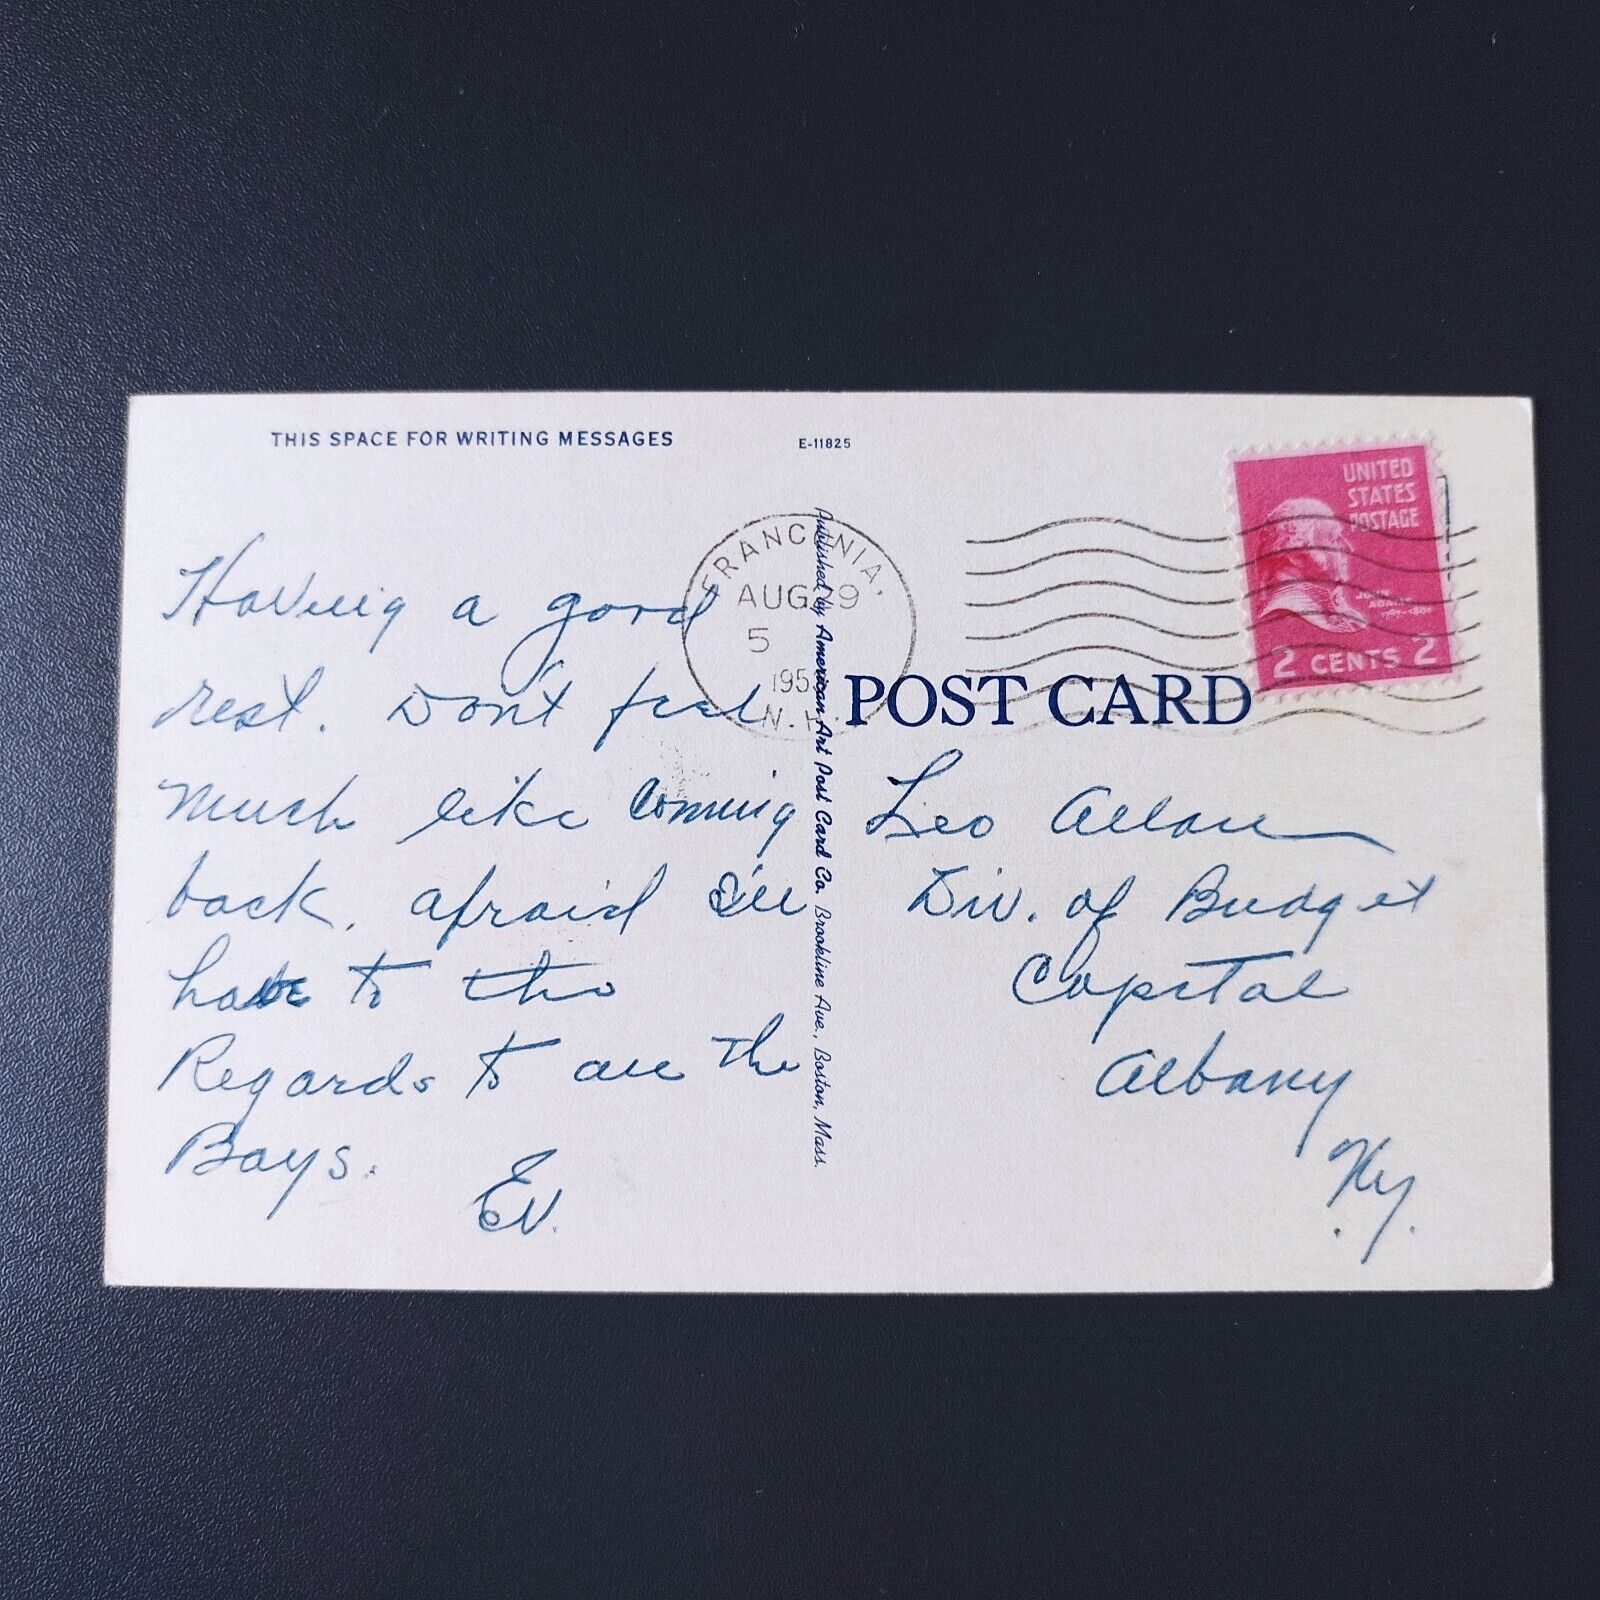 THIS SPACE FOR WRITING MESSAGES
E-11825
Having a good
rest. Don't feel
much like coming
back, afraid I'll
have to tho
Regards to all the
Boys.
Ev.
Published by American Art Post Card Co. Brookline Ave., Boston, Mass.
FRANCONIA.
AUG 9
5
195
N.H.
UNITED
STATES
POSTAGE
JOHN
ADAMS
1797-1801
2 CENTS 2
POST CARD
Leo Allan
Div. of Budget
Capital
Albany
N.Y.